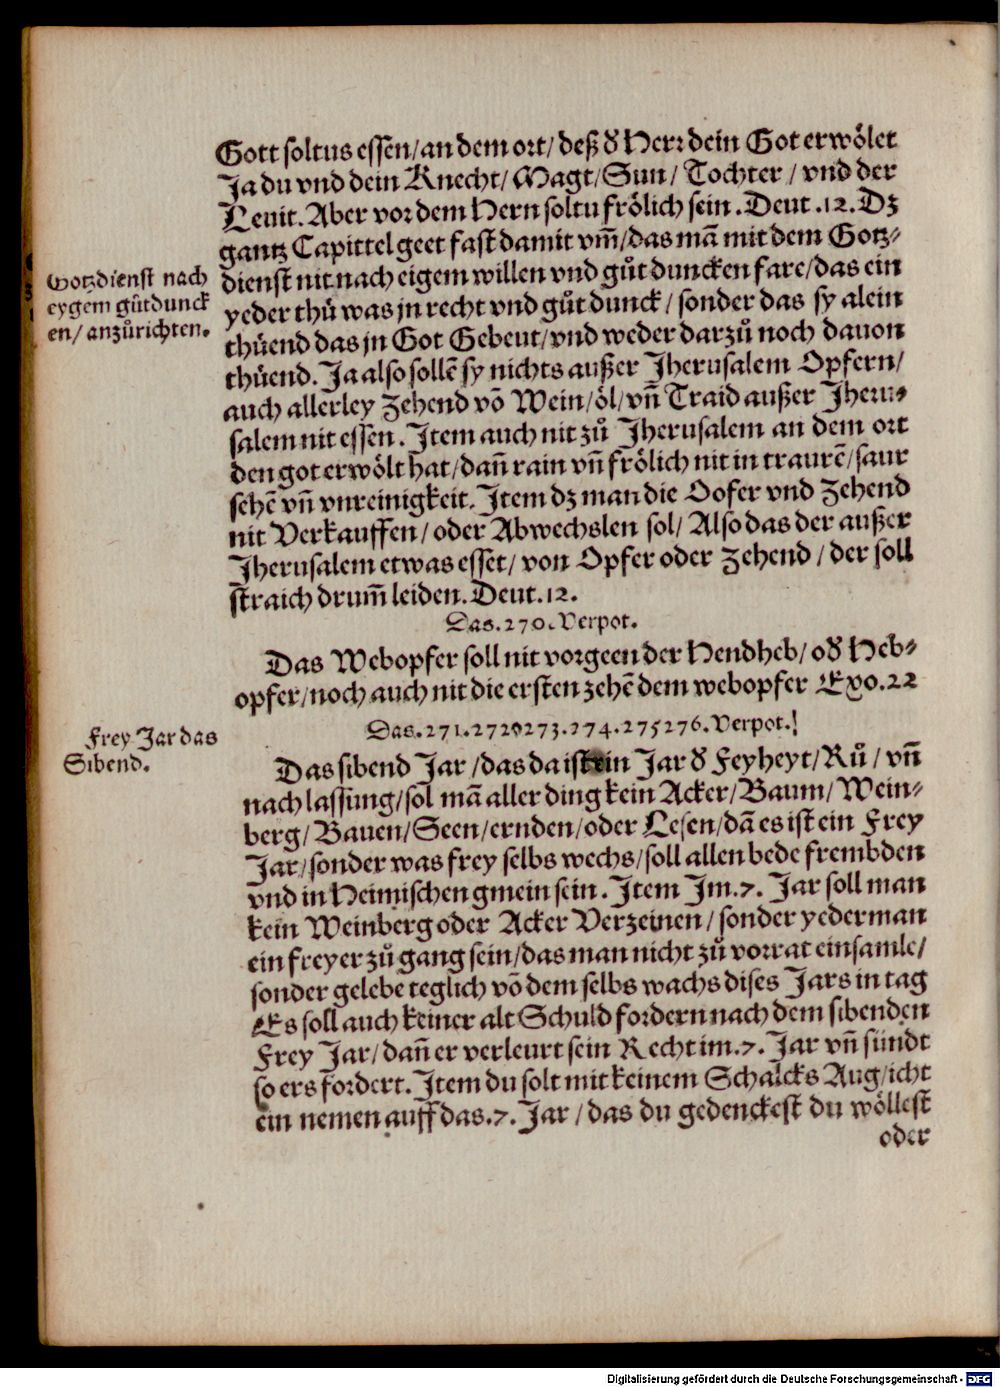 Gott soltus essen/an dem ort/ deß d̕ Herr dein Got erwölet
Ja du vnd dein Knecht/ Magt/ Sun/ Tochter / vnd der
Leuit. Aber vor dem Hern soltu frölich sein. Deut .12. Dz
gantz Capittel geet fast damit vm̄/das mā mit dem Gotz-
dienst nit nach eigem willen vnd gůt duncken fare/das ein
yeder thů was jn recht vnd gůt dunck/ sonder das sy alein
thüend das jn Got Gebeut/vnd weder darzů noch dauon
thüend. Ja also sollē sy nichts außer Jherusalem Opfern/
auch allerley Zehend vō Wein/öl/vn̄ Traid außer Jheru-
salem nit essen. Item auch nit zů Jherusalem an dem ort
den got erwölt hat/dan̄ rain vn̄ frölich nit in traurē/saur
sehē vn̄ vnreinigkeit. Item dz man die Oofer vnd Zehend
nit Verkauffen/ oder Abwechslen sol/ Also das der außer
Jherusalem etwas esset/ von Opfer oder Zehend / der soll
straich drum̄ leiden. Deut. 12.
Gotzdienst nach
eygem gůtdunck
en/ anzůrichten.
Das. 270. Verpot.
Das Webopfer soll nit vorgeen der Hendheb/ od̕ Heb-
opfer/noch auch nit die ersten zehē dem webopfer Exo. 22
Das. 271. 272 273. 274. 275 276. Verpot.
Frey Jar das
Sibend.
Das sibend Jar /das da ist ein Jar d̕ Feyheyt/ Rů/ vn̄
nach lassung/sol mā aller ding kein Acker/ Baum/ Wein-
berg/ Bauen/ Seen/ ernden/oder Lesen/dā es ist ein Frey
Jar/sonder was frey selbs wechs/soll allen bede frembden
vnd in Heimischen gmein sein. Item Im. 7. Jar soll man
kein Weinberg oder Acker Verzeinen/ sonder yederman
ein freyer zů gang sein/das man nicht zů vorrat einsamle/
sonder gelebe teglich vō dem selbs wachs dises Jars in tag
Es soll auch keiner alt Schuld fordern nach dem sibenden
Frey Jar/dan̄ er verleurt sein Recht im. 7. Jar vn̄ sündt
so ers fordert. Item du solt mit keinem Schalcks Aug/icht
ein nemen auff das. 7. Jar / das du gedenckest du wöllest
oder
Digitalisierung gefördert durch die Deutsche Forschungsgemeinschaft - DFG